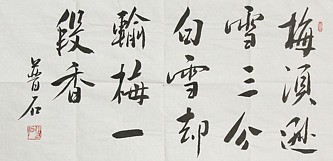 梅須遜
雪三分
白雪却
輸梅一
段香
普石